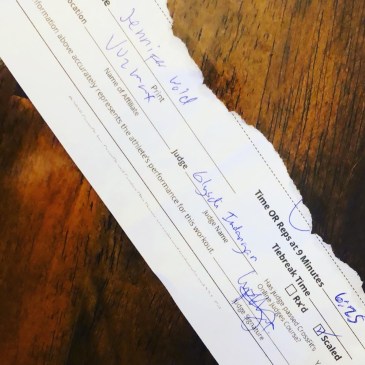 Jennifer Wold
Print
ocation
Name of Affiliate
Judge
Judge Name
Judge Signature
nformation above accurately represents the athlete's performance for this workout.
Time OR Reps at 9 Minutes
Tiebreak Time 6:25
Rx'd
Scaled
Has Judge passed CrossFit's
Online Judges Course?
Y